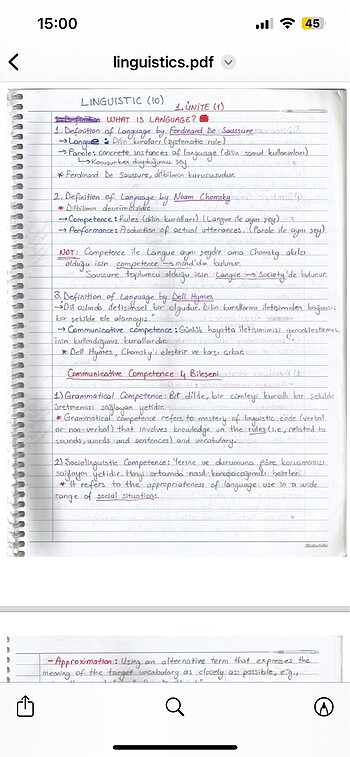 15:00
45
linguistics.pdf
LINGUISTIC (10)
1.ÜNİTE (1)
WHAT IS LANGUAGE?
1. Definition of Language by Ferdinand De Saussure
→ Langue : Dilin kuralları (systematic role)
→ Parole: Concrete instances of language (dilin somut kullanımları)
↳ Konuşurken duyduğumuz şey.
* Ferdinand De Saussure, dilbilimin kurucusudur.
2. Definition of Language by Noam Chomsky
* Dilbilimin devrimcisidir.
→ Competence : Rules (dilin kuralları) (Langue ile aynı şey)
→ Performance: Production of actual utterances. (Parole ile aynı şey)
NOT: Competence ile Langue aynı şeydir ama Chomsky akılcı
olduğu için competence → mind'da bulunur.
Saussure toplumcu olduğu için Langue → Society'de bulunur.
3. Definition of Language by Dell Hymes
→ Dil aslında iletişimsel bir olgudur. Dilin kurallarını iletişimden bağımsız
bir şekilde ele alamayız.
→ Communicative competence : Günlük hayatta iletişimimizi gerçekleştirmek
için kullandığımız kurallardır.
* Dell Hymes, Chomsky'i eleştirir ve karşı çıkar.
Communicative Competence 4 Bileşeni
1) Grammatical Competence: Bir dilde, bir cümleyi kurallı bir şekilde
üretmemizi sağlayan yetidir.
* Grammatical competence refers to mastery of linguistic code (verbal
or non-verbal) that involves knowledge on the rules (i.e., related to
sounds, words and sentences) and vocabulary.
2) Sociolinguistic Competence: Yerine ve durumuna göre konuşmamızı
sağlayan yetidir. Hangi ortamda nasıl konuşacağımızı belirler.
* It refers to the appropriateness of language use in a wide
range of social situations.
- Approximation : Using an alternative term that expresses the
meaning of the target vocabulary as closely as possible, e.g.,